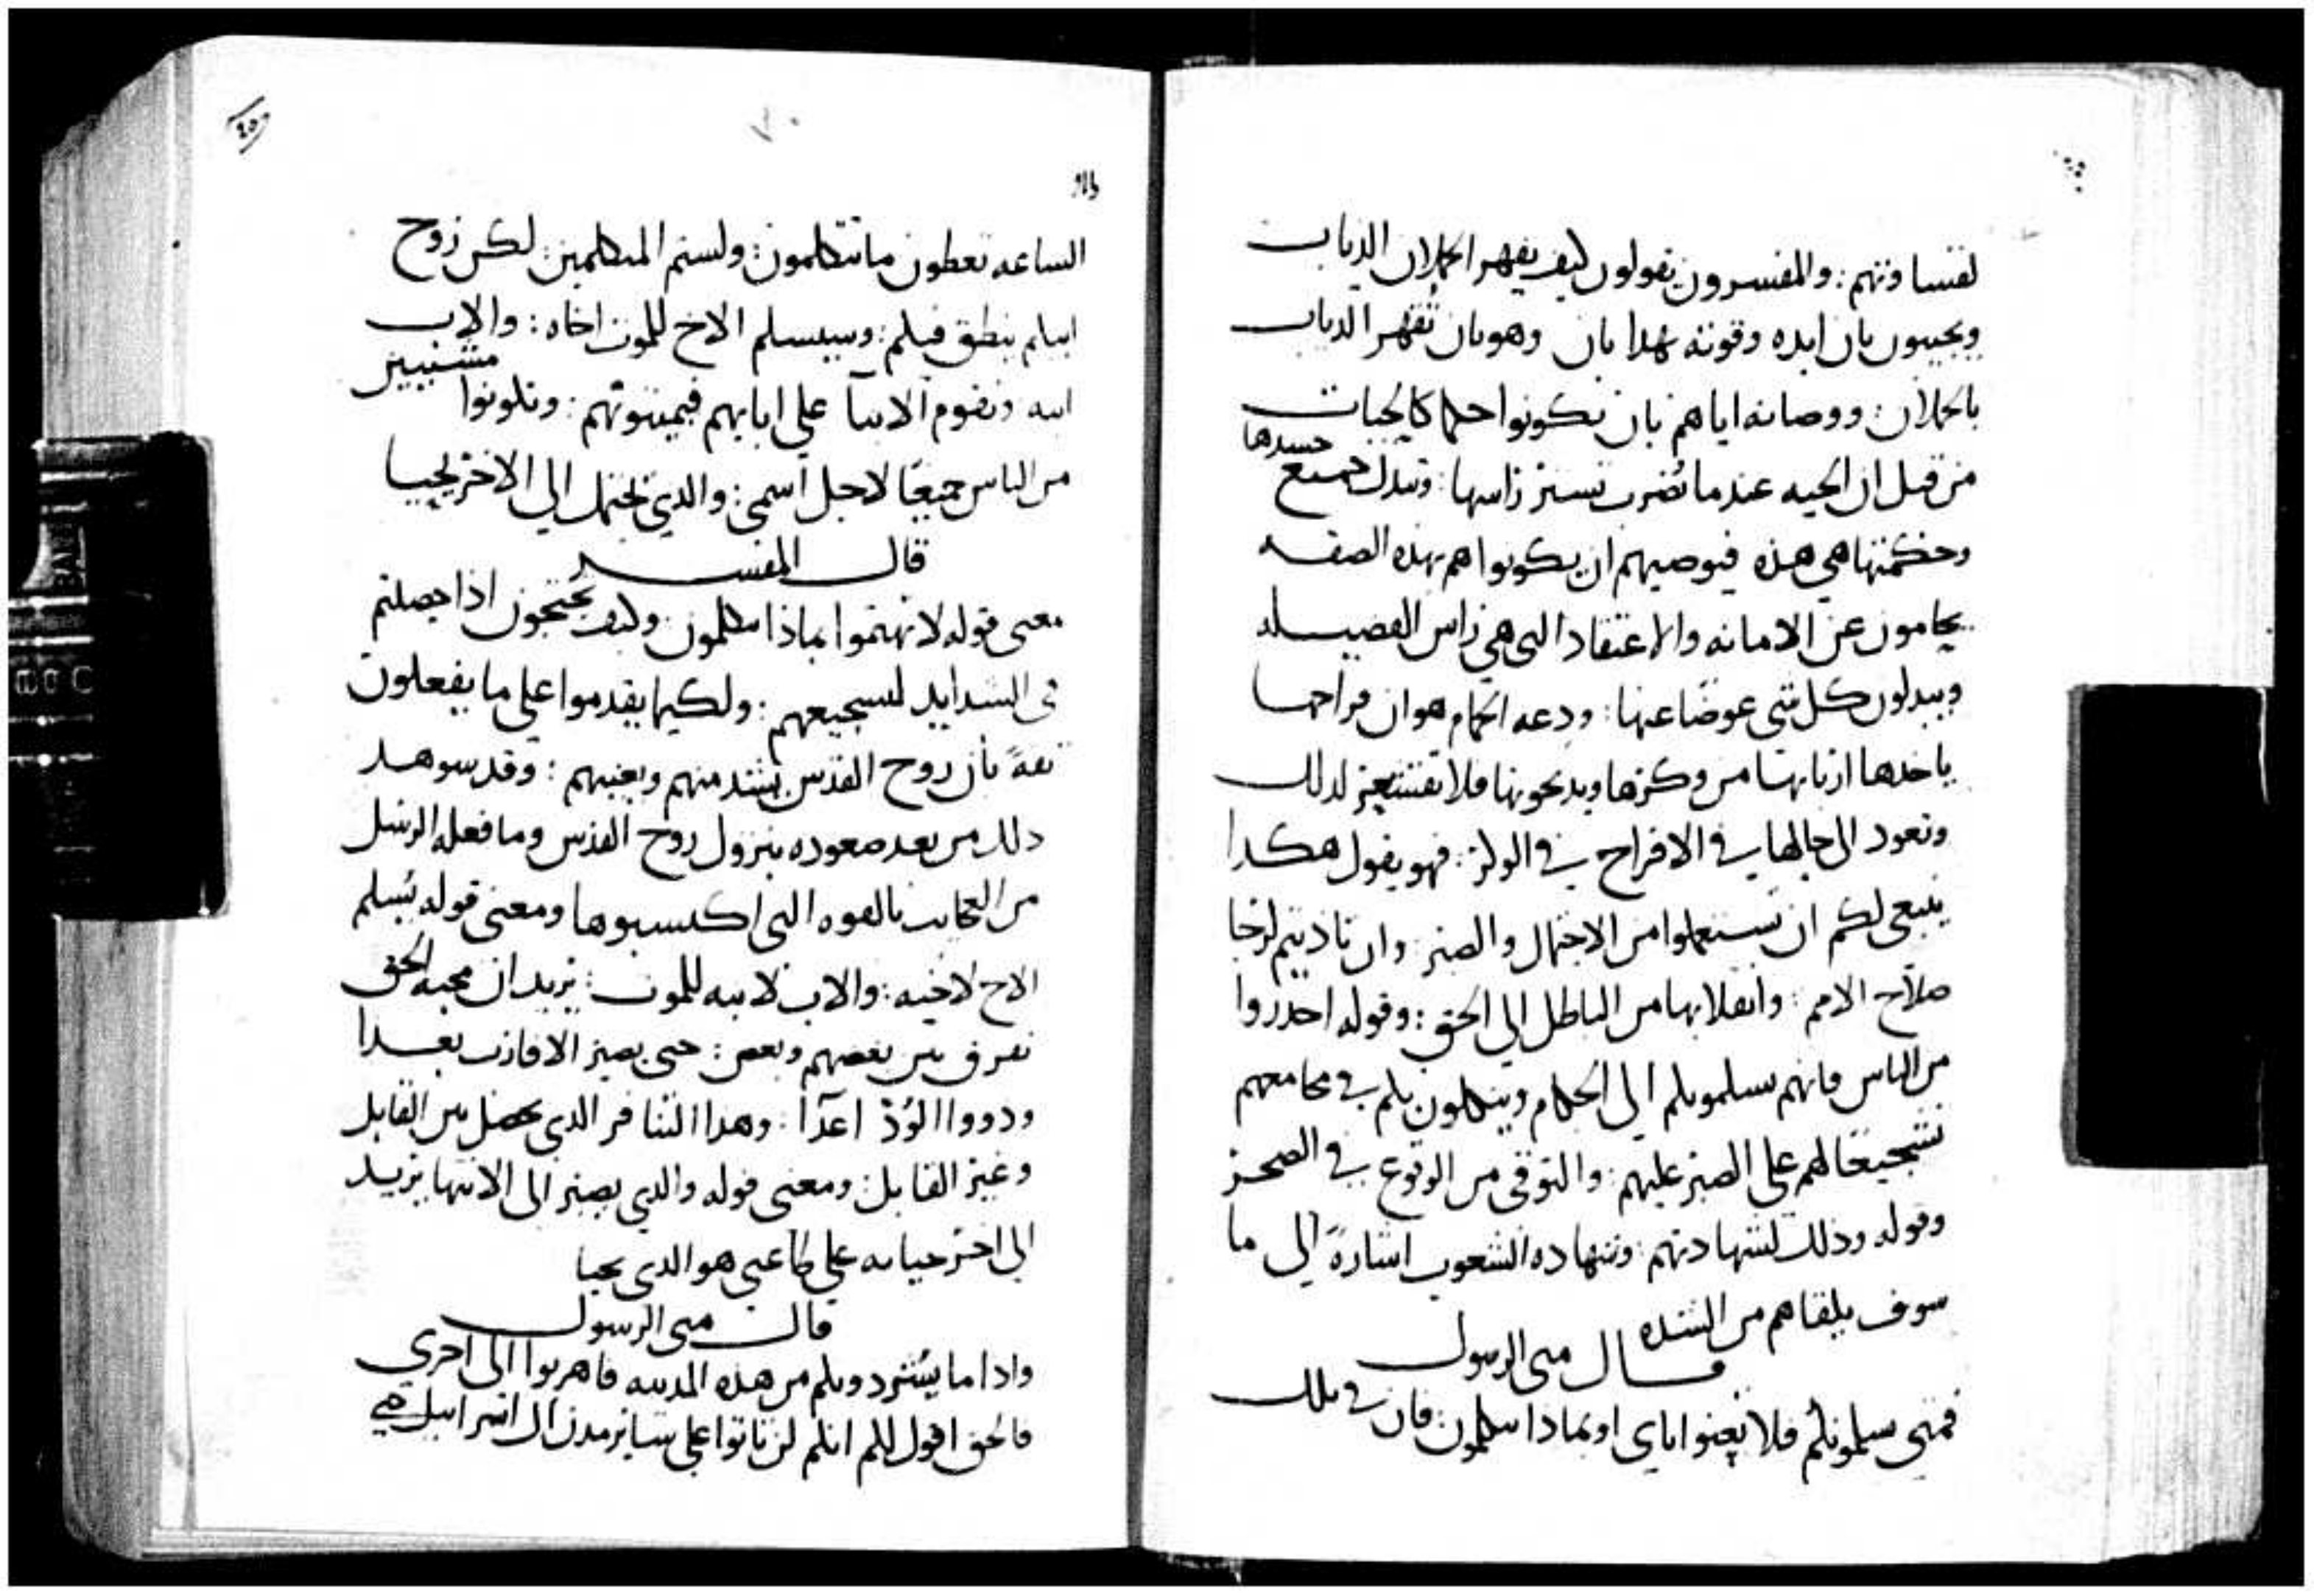 لقساوتهم: والمفسرون يقولون كيف يقهر الحملان الدياب
ويجيبون بان ايده وقوته بهدا بان وهو بان تقهر الدياب
بالحملان: ووصاته اياهم بان يكونوا حكما كالحيات
من قبل ان الحيه عندما تضرب تستر راسها: وتبدل جميع جسدها
وحكمتها هي هذه فيوصيهم ان يكونوا هم بهذه الصفه
يحامون عن الامانه والاعتقاد التي هي راس الفضيله
ويبدلون كل شي عوضا عنها: ودعه الحمام هو ان فراخها
ياخدها اربابها من وكرها ويدبحونها فلا تقشعر لدلك
وتعود الى حالها في الافراخ في الوكر: فهو يقول هكدا
ينبغي لكم ان تستعملوا من الاحتمال والصبر: وان تاديتم لرجا
صلاح الامم: وانقلابها من الباطل الي الحق: وقوله احدروا
من الناس فانهم يسلمونكم الى الحكام وينكلون بكم في مجامعهم
تشجيعا لهم على الصبر عليهم: والتوقي من الوقوع في الضجر
وقوله ودلك لشهادتهم: وشهاده الشعوب اشارة الي ما
سوف يلقاهم من الشده
قال متى الرسول
فمتي سلمونكم فلا تعنوا اباي او بمادا تتكلمون: فان في تلك
الساعه تعطون ما تتكلمون: ولستم المتكلمين: لكن روح
ابيكم ينطق فيكم: وسيسلم الاخ للموت اخاه: والاب
ابنه وتقوم الابنآ علي ابايهم فيميتونهم: وتكونوا مشنيين
من الناس جميعا لاجل اسمي: والدي يحتمل الي الاخر يحيا
قال المفسر
معنى قوله لا تهتموا بماذا تتكلمون: وكيف تحتجون اذا حصلتم
في الشدايد لتشجيعهم: ولكيما يقدموا على ما يفعلون
ثقةً بان روح القدس يشد منهم ويعينهم: وقد شوهد
دلك من بعد صعوده بنزول روح القدس وما فعله الرسل
من العجايب بالقوه التي اكتسبوها ومعنى قوله يسلم
الاخ لاخيه: والاب لابنه للموت: يريد ان محبه الحق
تفرق بين بعضهم وبعض: حتى يصير الاقارب بعدا
ودووا الود اعدآ: وهدا التنافر الدي يحصل بين القابل
وغير القابل: ومعنى قوله والدي يصبر الى الانتها يريد
الي اخر حياته علي طاعتي هو الدي يحيا
قال متى الرسول
وادا ما يشردونكم من هده المدينه فاهربوا الى اخري
فالحق اقول لكم انكم لن تاتوا علي ساير مدن ال اسراييل هي